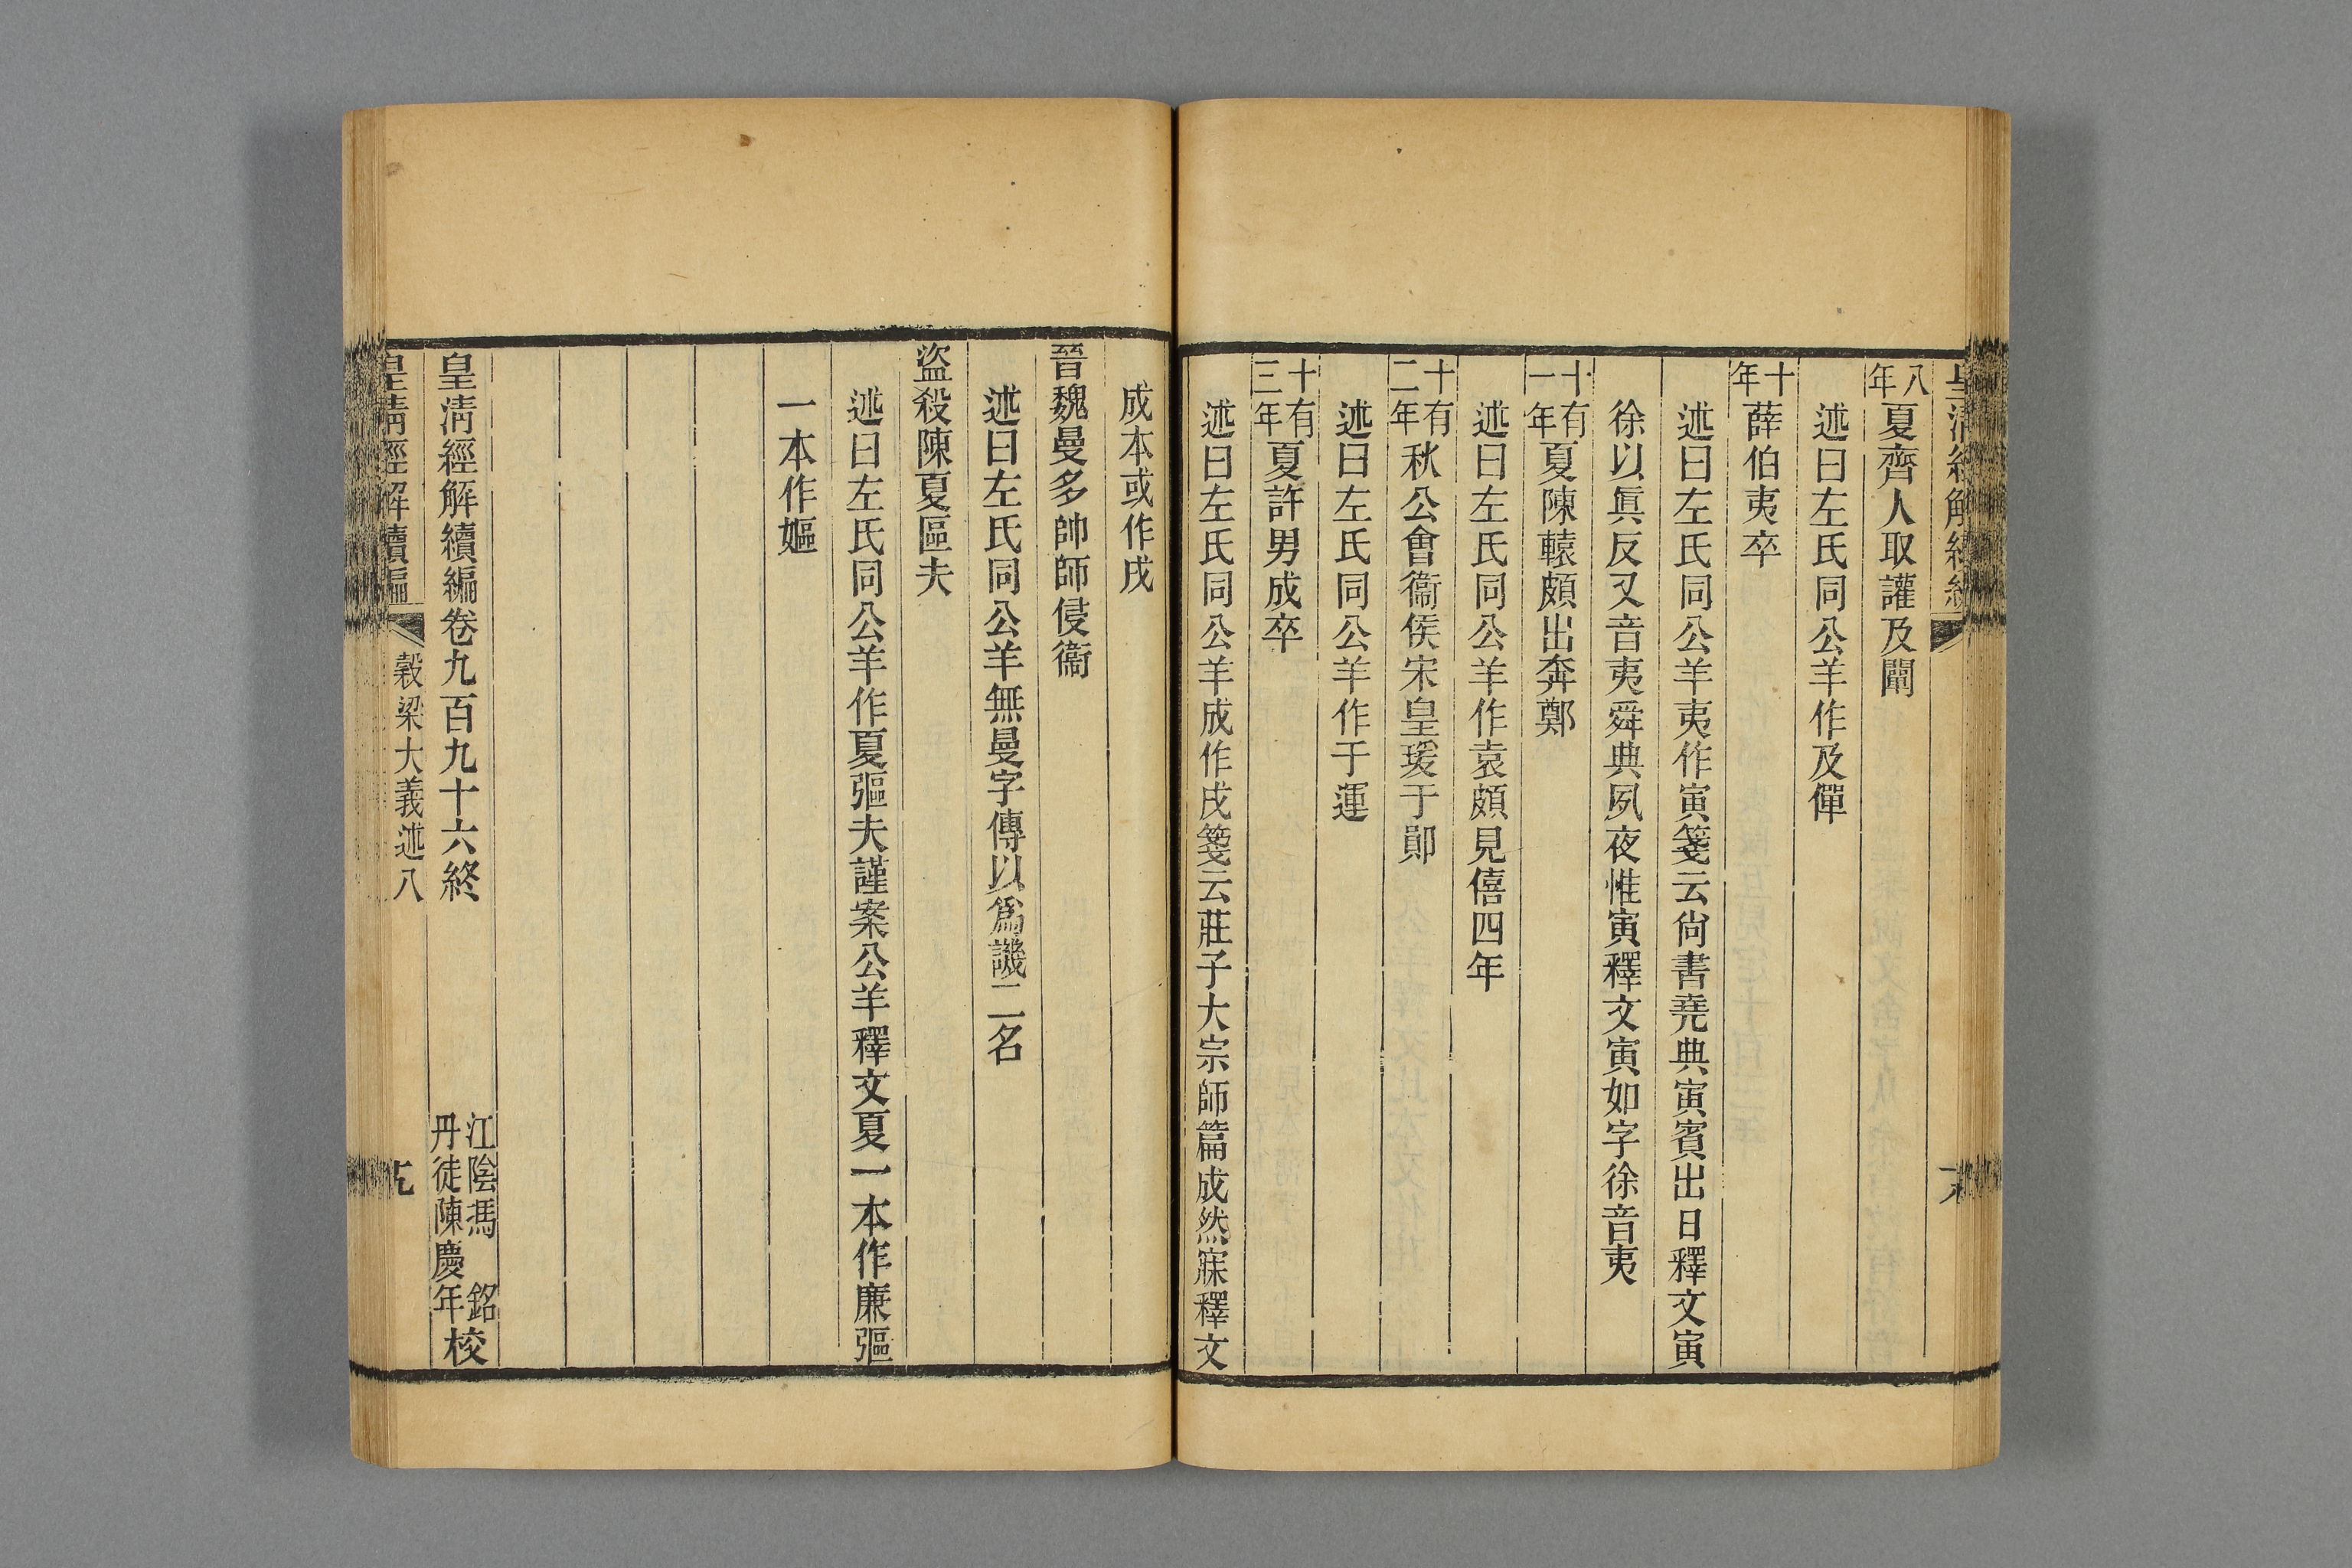 八年夏齊人取讙及闡
述曰左氏同公羊作及僤
十年薛伯夷卒
述曰左氏同公羊夷作寅箋云尙書堯典寅賓出日釋文寅
徐以眞反又音夷舜典夙夜惟寅釋文寅如字徐音夷
十有一年夏陳轅頗出奔鄭
述曰左氏同公羊作袁頗見僖四年
十有二年秋公會衞侯宋皇瑗于鄖
述曰左氏同公羊作于運
十有三年夏許男成卒
述曰左氏同公羊成作戌箋云莊子大宗師篇成然寐釋文
成本或作戌
晉魏曼多帥師侵衞
述曰左氏同公羊無曼字傳以爲譏二名
盜殺陳夏區夫
述曰左氏同公羊作夏彄夫謹案公羊釋文夏一本作廉彄
一本作嫗
皇淸經解續編卷九百九十六終
江陰馮 銘
丹徒陳慶年校
皇淸經解續編 穀梁大義述八